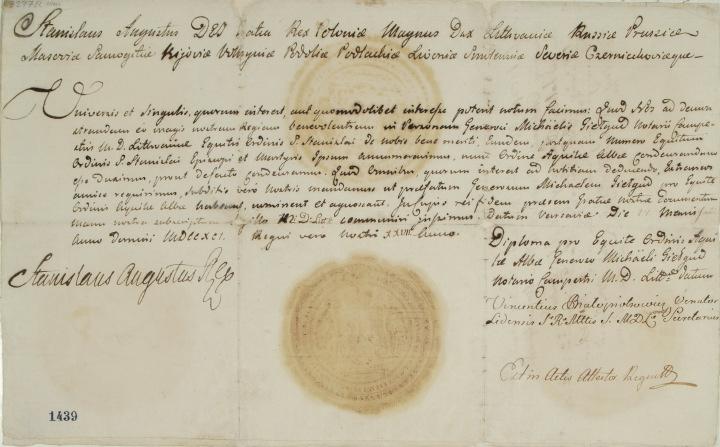 Stanislaus Augustus DEI Gratia Rex Poloniæ Magnus Dux Lithvaniæ Russiæ Prussiæ
Masoviæ Samogitiæ Kijoviæ Volhyniæ Podoliæ Podlachiæ Livoniæ Smolensciæ Severiæ Czerniechoviæque
Universis et Singulis, quorum interest, aut quomodolibet interesse poterit notum facimus: Quod Nos ad demon
strandam eo magis nostram Regiam benevolentiam in Personam Generosi Michaelis Giełgud Notarii Campe
stris M. D. Lithvaniæ Equitis Ordinis S. Stanislai de nobis bene meriti, Eundem, postquam Numero Equitum
Ordinis S. Stanislai Episcopi et Martyris Ipsum annumeravimus, nunc Ordine Aquilæ Albæ condecorandum
esse duximus, prout de facto condecoramus. Quod Omnibus, quorum interest ad Notitiam deducendo, Extraneos
amice requirimus, Subditis vero Nostris mandamus ut præfatum Generosum Michaelem Giełgud pro Equite
Ordinis Aquilæ Albæ habeant, nominent et agnoscant. In fujus rei fidem præsem gratæ Nostræ
manu nostra subscriptas Sigillo M. D. Lit. communiri jussimus. Datum Varsaviæ Die Mensis
Anno Domini MDCCXCI. Regni vero Nostri XXVII Anno.
Stanislaus Augustus Rex
Diploma pro Equite Ordinis Aqui
læ Albæ Generoso Michaeli Giełgud
Notario Campestri M. D. Litt. datum
Vincentius Venator
Lidensis S. R. Mttis S. M. D. L. Secretarius
Est in Actis
1439